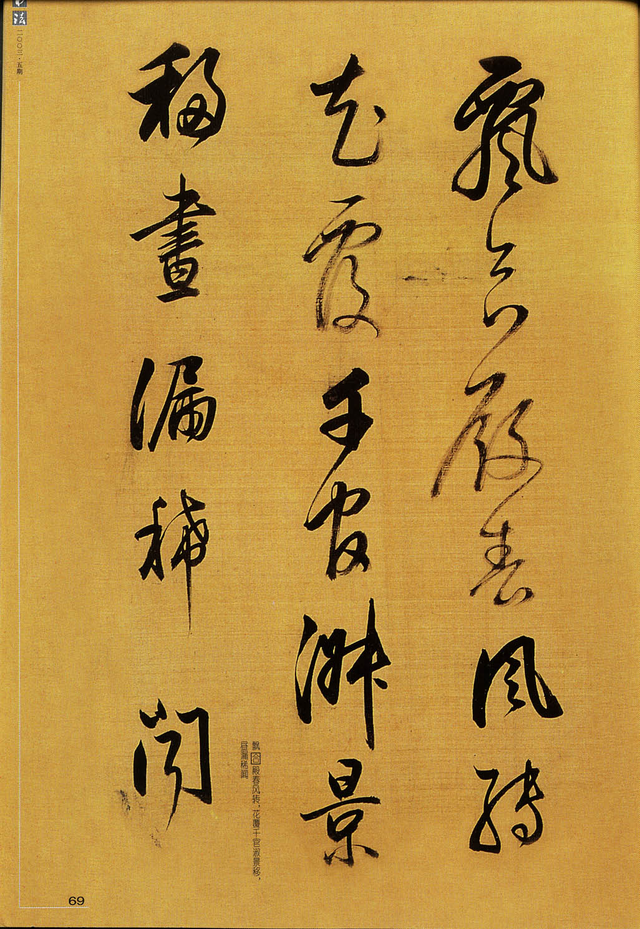 飄合殿春風轉
花覆千官淑景
移晝漏稀聞
飘合殿春风转,花覆千官淑景移,
昼漏稀闻
法
二〇〇三·五期
69